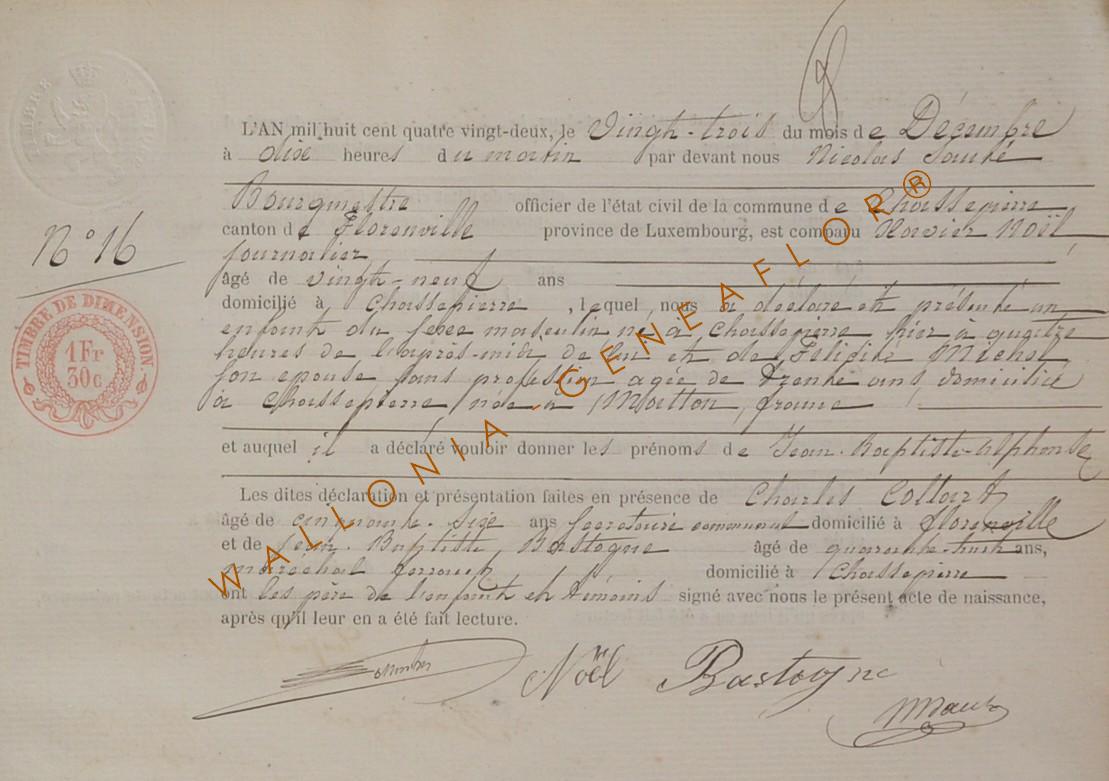 TIMBRE
L'AN mil huit cent quatre vingt-deux, le Vingt-trois du mois de Décembre
à dix heures du matin par devant nous Nicolas
Bourgmestre officier de l'état civil de la commune de Chassepierre
N° 16
canton de Florenville province de Luxembourg, est comparu Xavier Noël
journalier
âgé de vingt-neuf ans
domicilié à Chassepierre, lequel nous a déclaré et présenté un
enfant du sexe masculin né à Chassepierre hier à quatre
heures de l'après-midi de lui et de
son épouse sans profession agée de trente ans domiciliée
à Chassepierre née à Moitton, france
et auquel il a déclaré vouloir donner les prénoms de Jean-Baptiste-Alphonse
Les dites déclaration et présentation faites en présence de Charles Collart
âgé de cinquante-six ans secrétaire communal domicilié à florenville
et de Jean-Baptiste Bastogne âgé de quarante-huit ans,
maréchal ferrant domicilié à Chassepierre
ont les père de l'enfant et témoins signé avec nous le présent acte de naissance,
après qu'il leur en a été fait lecture.
Noël Bastogne
TIMBRE DE DIMENSION
1 Fr
30 c
WALLONIA.GENEAFLOR®